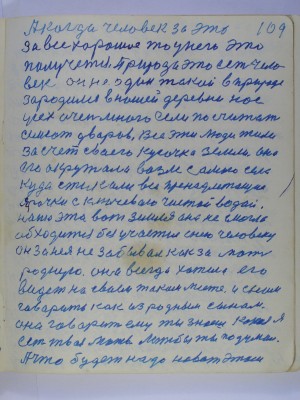 А когда человек за это 109
за все хорошое то у него это
получется. Природа это есть чело-
век он не один такой в природе
зародился в нашей деревни нас
усех очен много если посчитат
семсот дваров, Все эти люди жили
за счет своего кусочка земли, она
его окружала возле самого
куда стикали все пренадлежащие
ярочки с ключевою чистой водой.
наша эта вот зимля она не могла
обходится без участия сию человеку
он за нея не забывал как за мать
родную. она всегда хотела его
видет на своём таком месте. и с ним
гаварить как из родным сынам.
она гаварит ему ты знаеш какая я
есть твая мать. Мне бы ты подумал.
А что будет надо новат этом